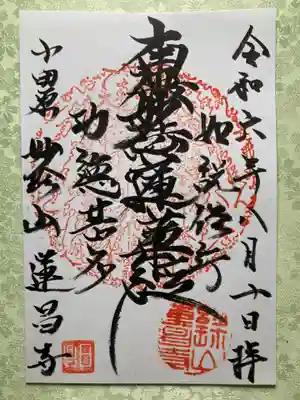 令和六年八月十日拝
如説修行
南無妙法蓮華経
功徳甚多
小田原 妙珎山 蓮昌寺
蓮昌寺